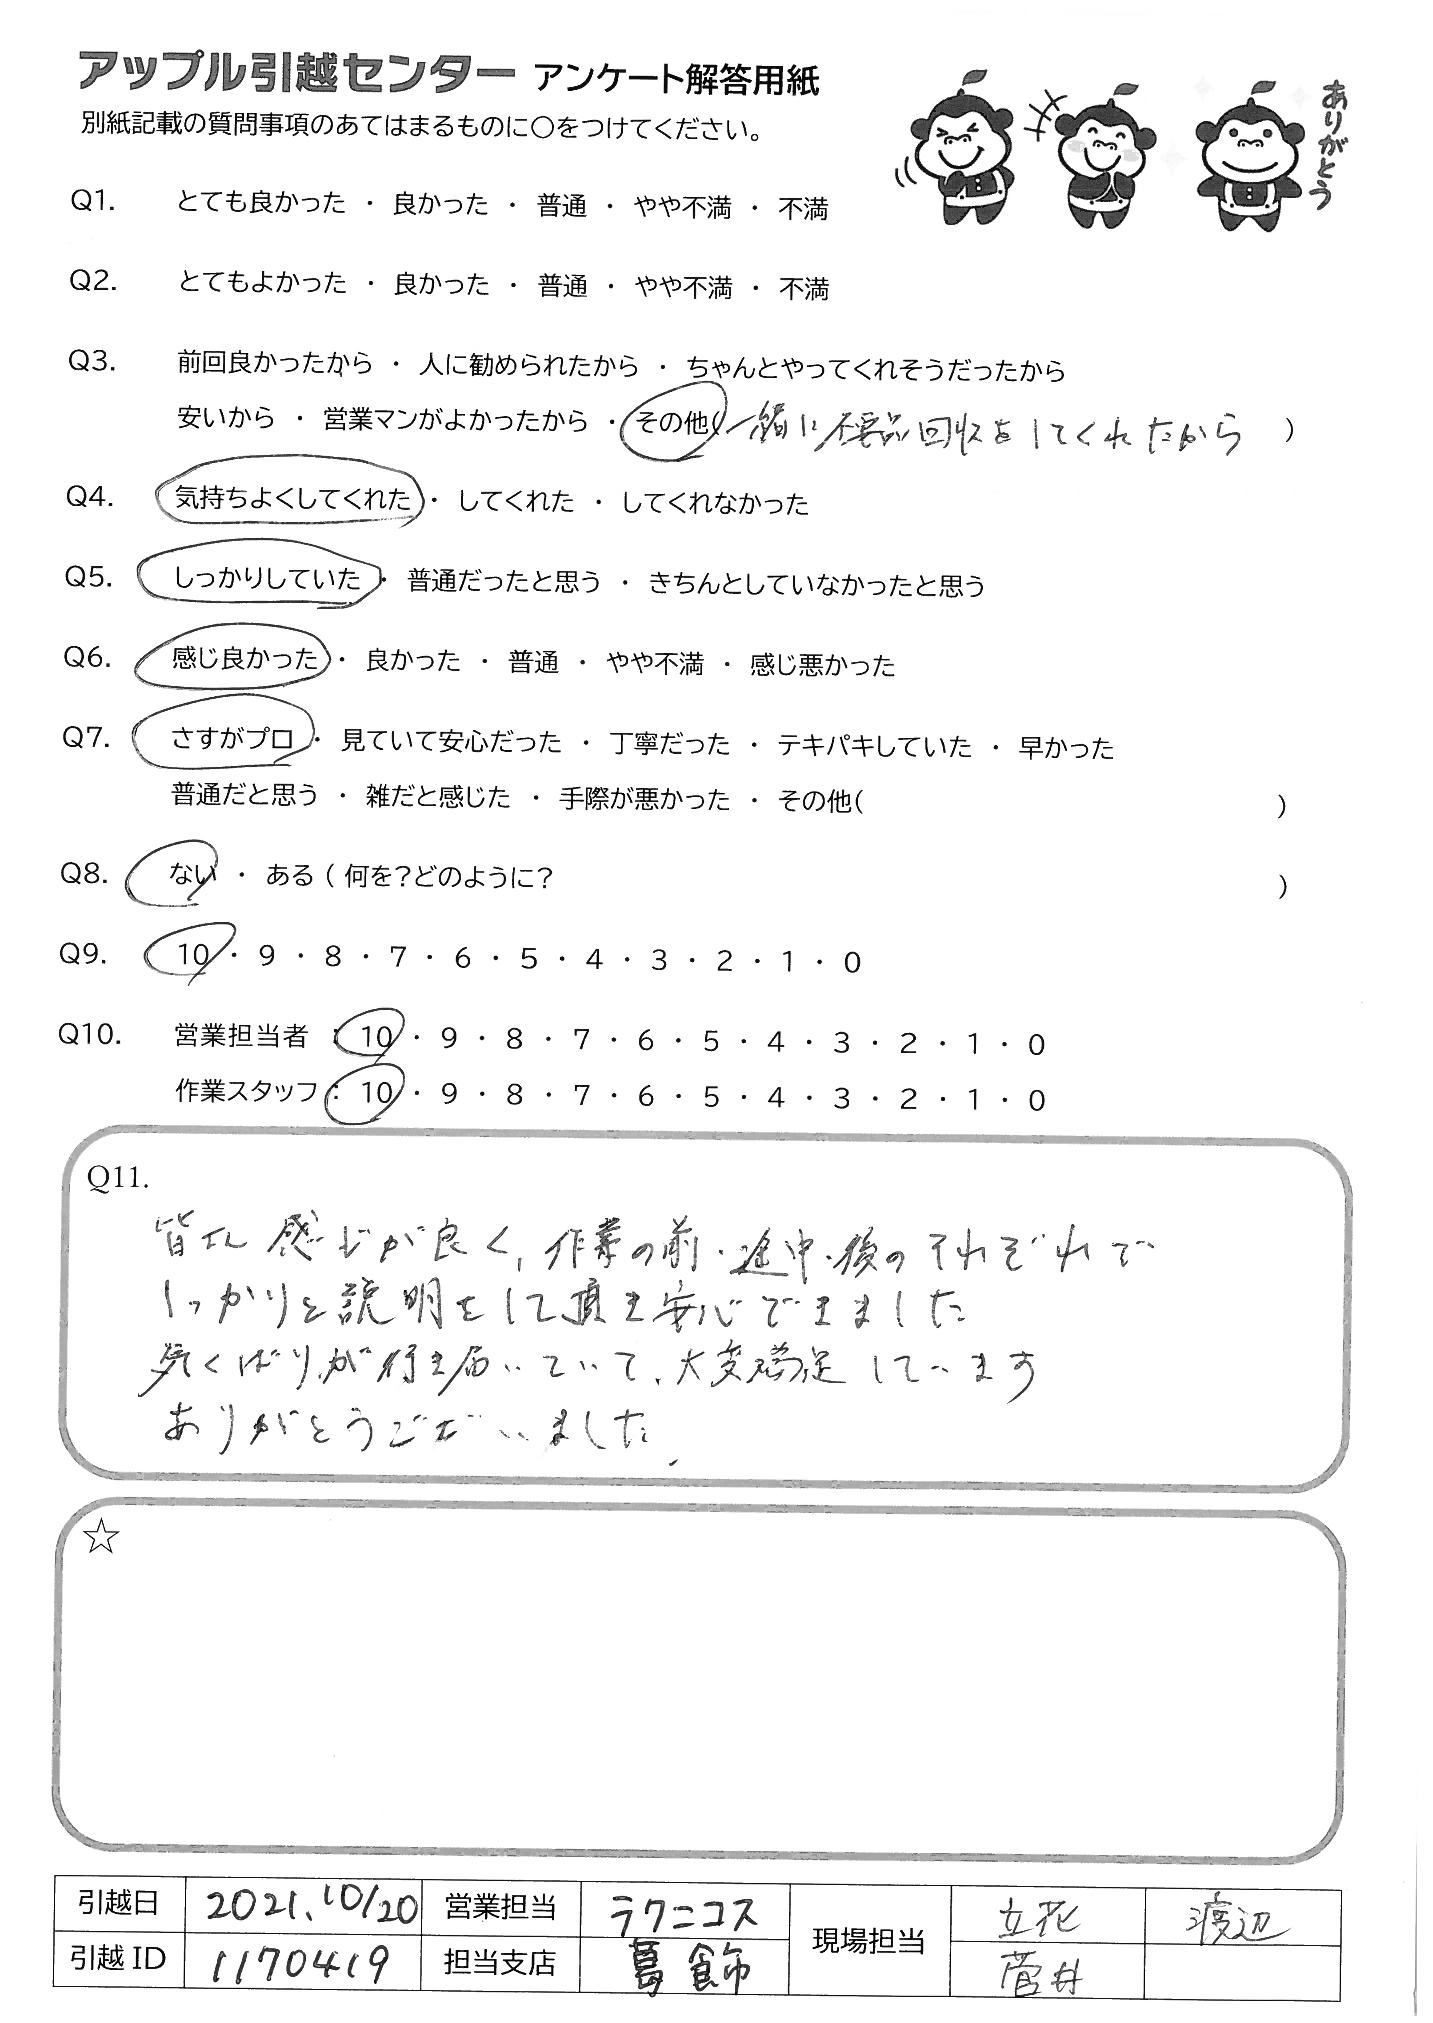 アップル引越センター アンケート解答用紙
ありがとう
別紙記載の質問事項のあてはまるものに○をつけてください。
Q1. とても良かった ・ 良かった ・ 普通 ・ やや不満 ・ 不満
Q2. とてもよかった ・ 良かった ・ 普通 ・ やや不満 ・ 不満
Q3. 前回良かったから ・ 人に勧められたから ・ ちゃんとやってくれそうだったから
安いから ・ 営業マンがよかったから ・ その他(一緒に不要品回収をしてくれたから )
Q4. 気持ちよくしてくれた ・ してくれた ・ してくれなかった
Q5. しっかりしていた ・ 普通だったと思う ・ きちんとしていなかったと思う
Q6. 感じ良かった ・ 良かった ・ 普通 ・ やや不満 ・ 感じ悪かった
Q7. さすがプロ ・ 見ていて安心だった ・ 丁寧だった ・ テキパキしていた ・ 早かった
普通だと思う ・ 雑だと感じた ・ 手際が悪かった ・ その他( )
Q8. ない ・ ある ( 何を?どのように? )
Q9. 10 ・ 9 ・ 8 ・ 7 ・ 6 ・ 5 ・ 4 ・ 3 ・ 2 ・ 1 ・ 0
Q10. 営業担当者 : 10 ・ 9 ・ 8 ・ 7 ・ 6 ・ 5 ・ 4 ・ 3 ・ 2 ・ 1 ・ 0
作業スタッフ : 10 ・ 9 ・ 8 ・ 7 ・ 6 ・ 5 ・ 4 ・ 3 ・ 2 ・ 1 ・ 0
Q11.
皆さん感じが良く、作業の前・途中・後のそれぞれで
しっかりと説明をして頂き安心できました
気くばりが行き届いていて、大変満足しています
ありがとうございました.
☆
引越日 2021.10/20 営業担当 ラクニコス 現場担当 立花 渡辺
引越ID 1170419 担当支店 葛飾 菅井